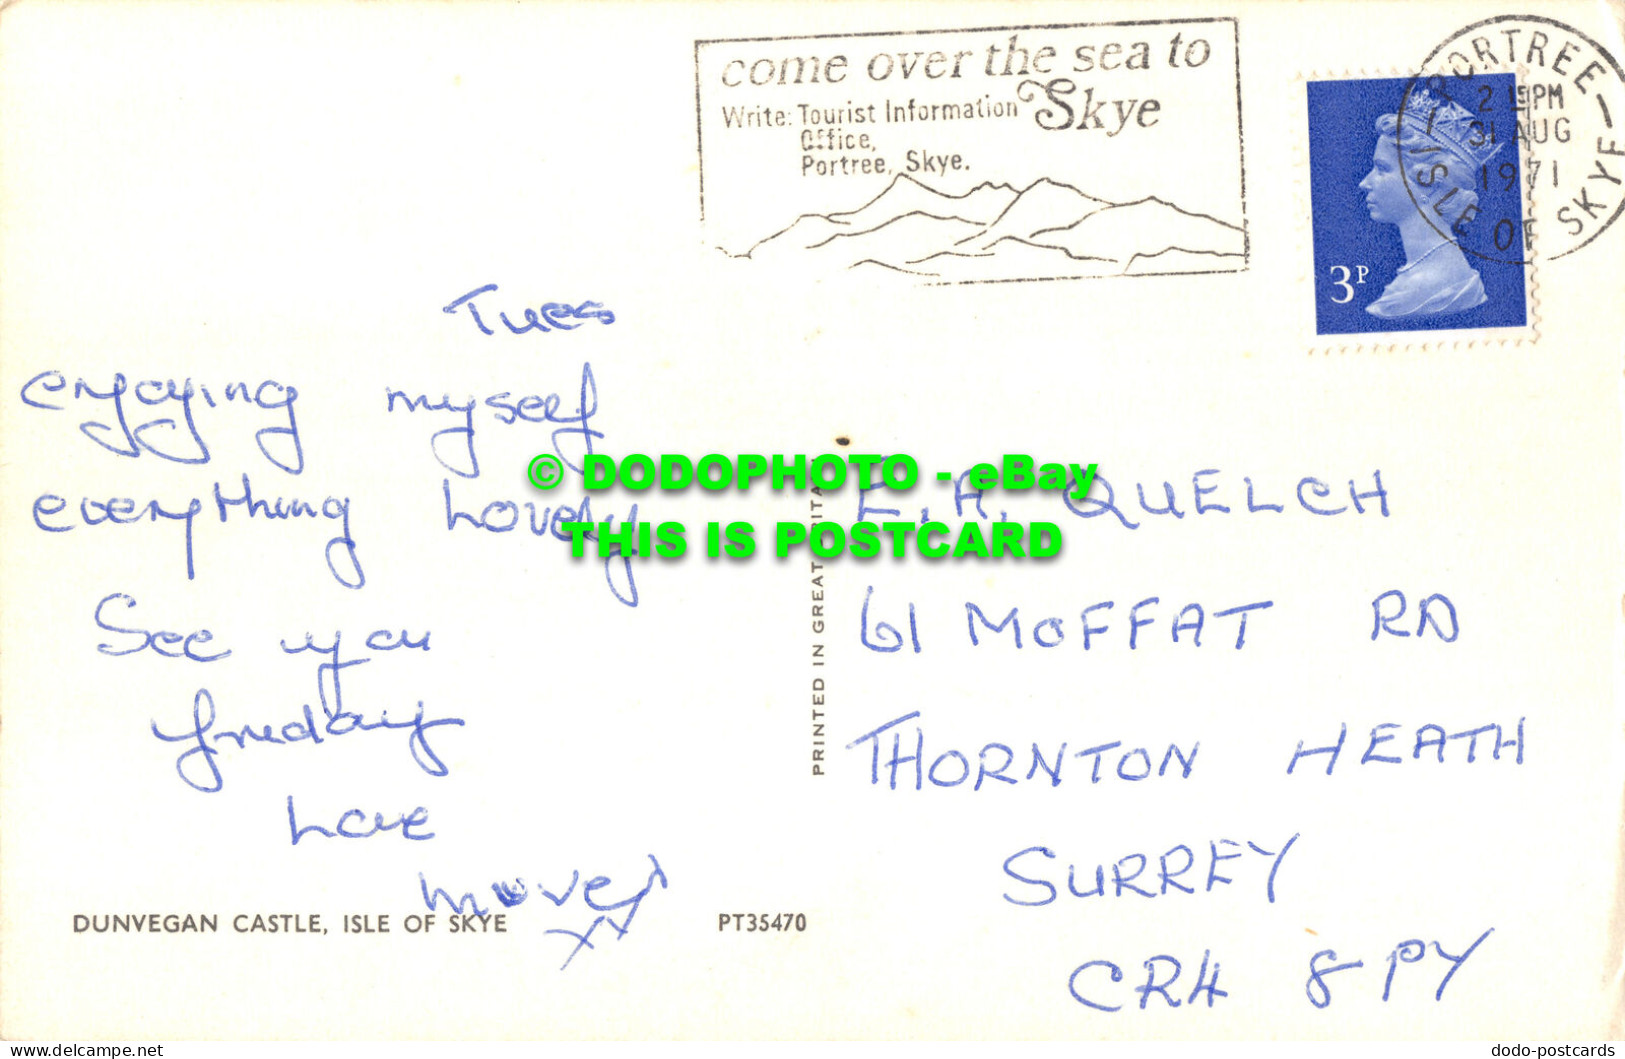 come over the sea to
Skye
Write: Tourist Information
Office,
Portree, Skye.
PORTREE
2 15PM
31 AUG
1971
ISLE OF SKYE
3P
Tues
enjoying myself
everything Lovely
See you
Friday
Love
xx
© DODOPHOTO - eBay
THIS IS POSTCARD
PRINTED IN GREAT BRITAIN
E. A. QUELCH
61 MOFFAT RD
THORNTON HEATH
SURREY
CR4 8PY
DUNVEGAN CASTLE, ISLE OF SKYE
PT35470
delcampe.net
dodo-postcards